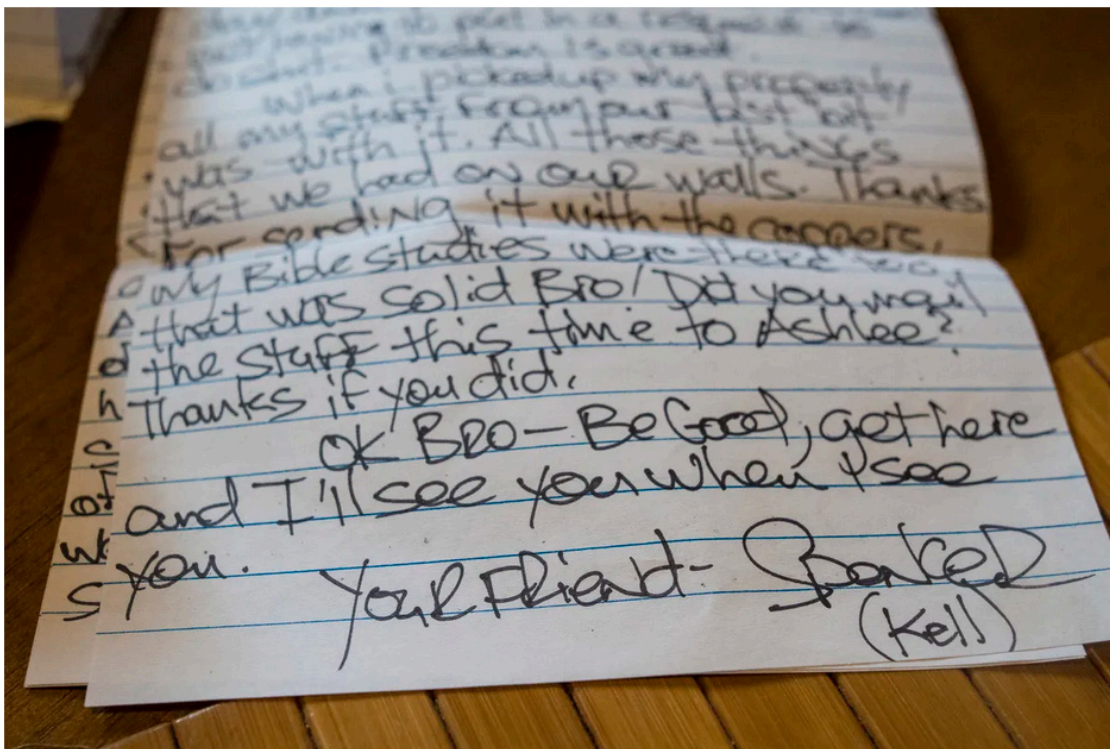 not having to put in a request to
doctor. Freedom is great.
When i picked up my property
all my stuff from our last bit
was with it. All those things
that we had on our walls. Thanks
for sending it with the coppers.
My Bible studies were there too,
that was solid Bro! Did you mail
the stuff this time to Ashlee?
Thanks if you did.
OK BRO - Be Good, get here
and I'll see you when I see
you.
Your Friend- Spencer
(Kell)